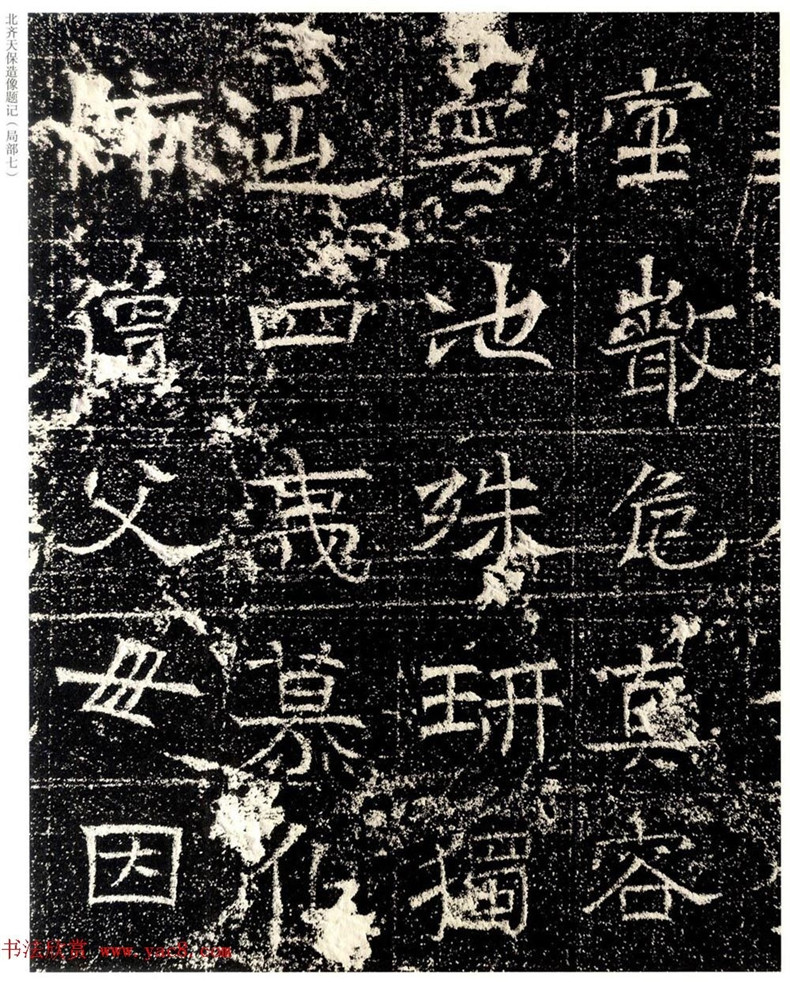 北齐天保造像题记（局部七）
散危真容
雲池殊研獨
四夷慕化
僧父母因
书法欣赏 www.yac8.com